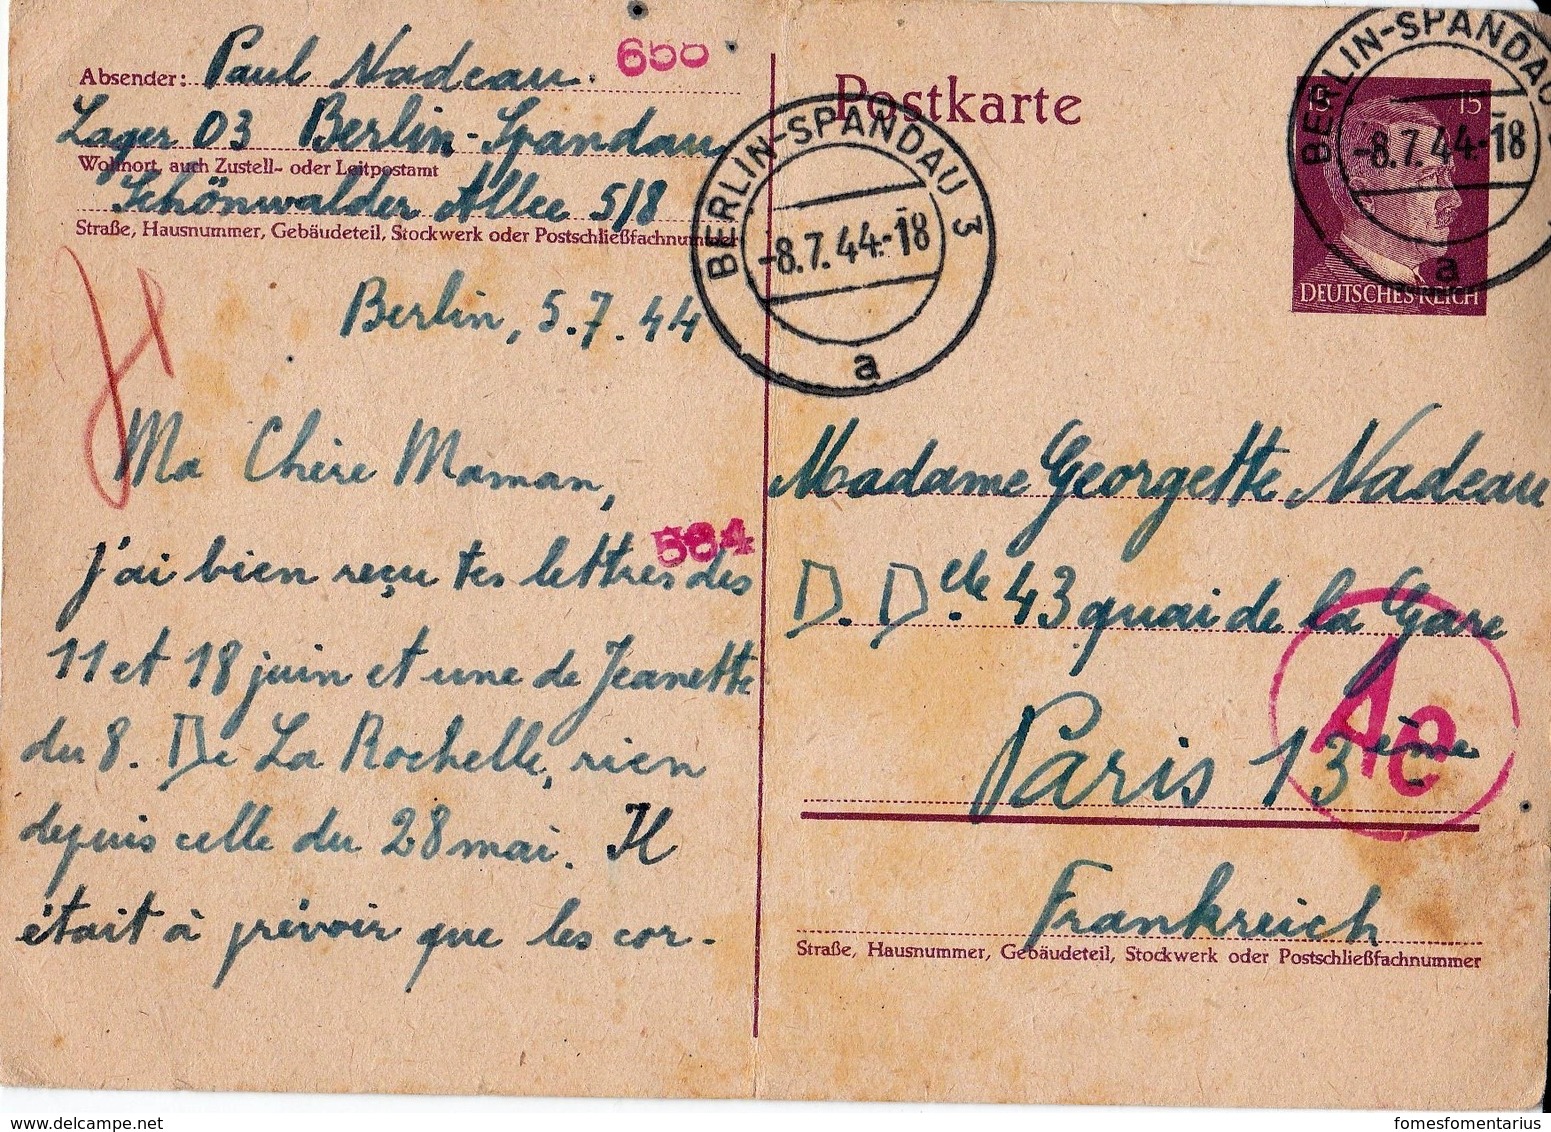 Absender: Paul Nadeau
658
Lager 03 Berlin-Spandau
Wohnort, auch Zustell- oder Leitpostamt
Schönwalder Allee 5/8
Straße, Hausnummer, Gebäudeteil, Stockwerk oder Postschließfachnummer
Berlin, 5.7.44
Ma Chère Maman,
584
j'ai bien reçu tes lettres des
11 et 18 juin et une de Jeanette
du 8. De La Rochelle, rien
depuis celle du 28 mai. Il
était à prévoir que les cor-
Postkarte
BERLIN-SPANDAU 3
-8.7.44.-18
a
15 15
DEUTSCHES REICH
BERLIN-SPANDAU
-8.7.44.-18
a
Madame Georgette Nadeau
D. Delle. 43 quai de la Gare
Paris 13ème
Ae
Frankreich
Straße, Hausnummer, Gebäudeteil, Stockwerk oder Postschließfachnummer
www.delcampe.net
fomesfomentarius